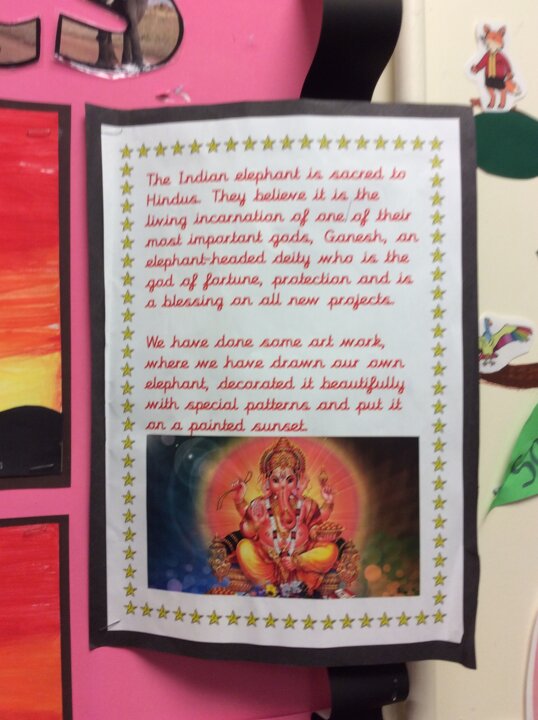 The Indian elephant is sacred to
Hindus. They believe it is the
living incarnation of one of their
most important gods, Ganesh, an
elephant-headed deity who is the
god of fortune, protection and is
a blessing on all new projects.
We have done some art work,
where we have drawn our own
elephant, decorated it beautifully
with special patterns and put it
on a painted sunset.